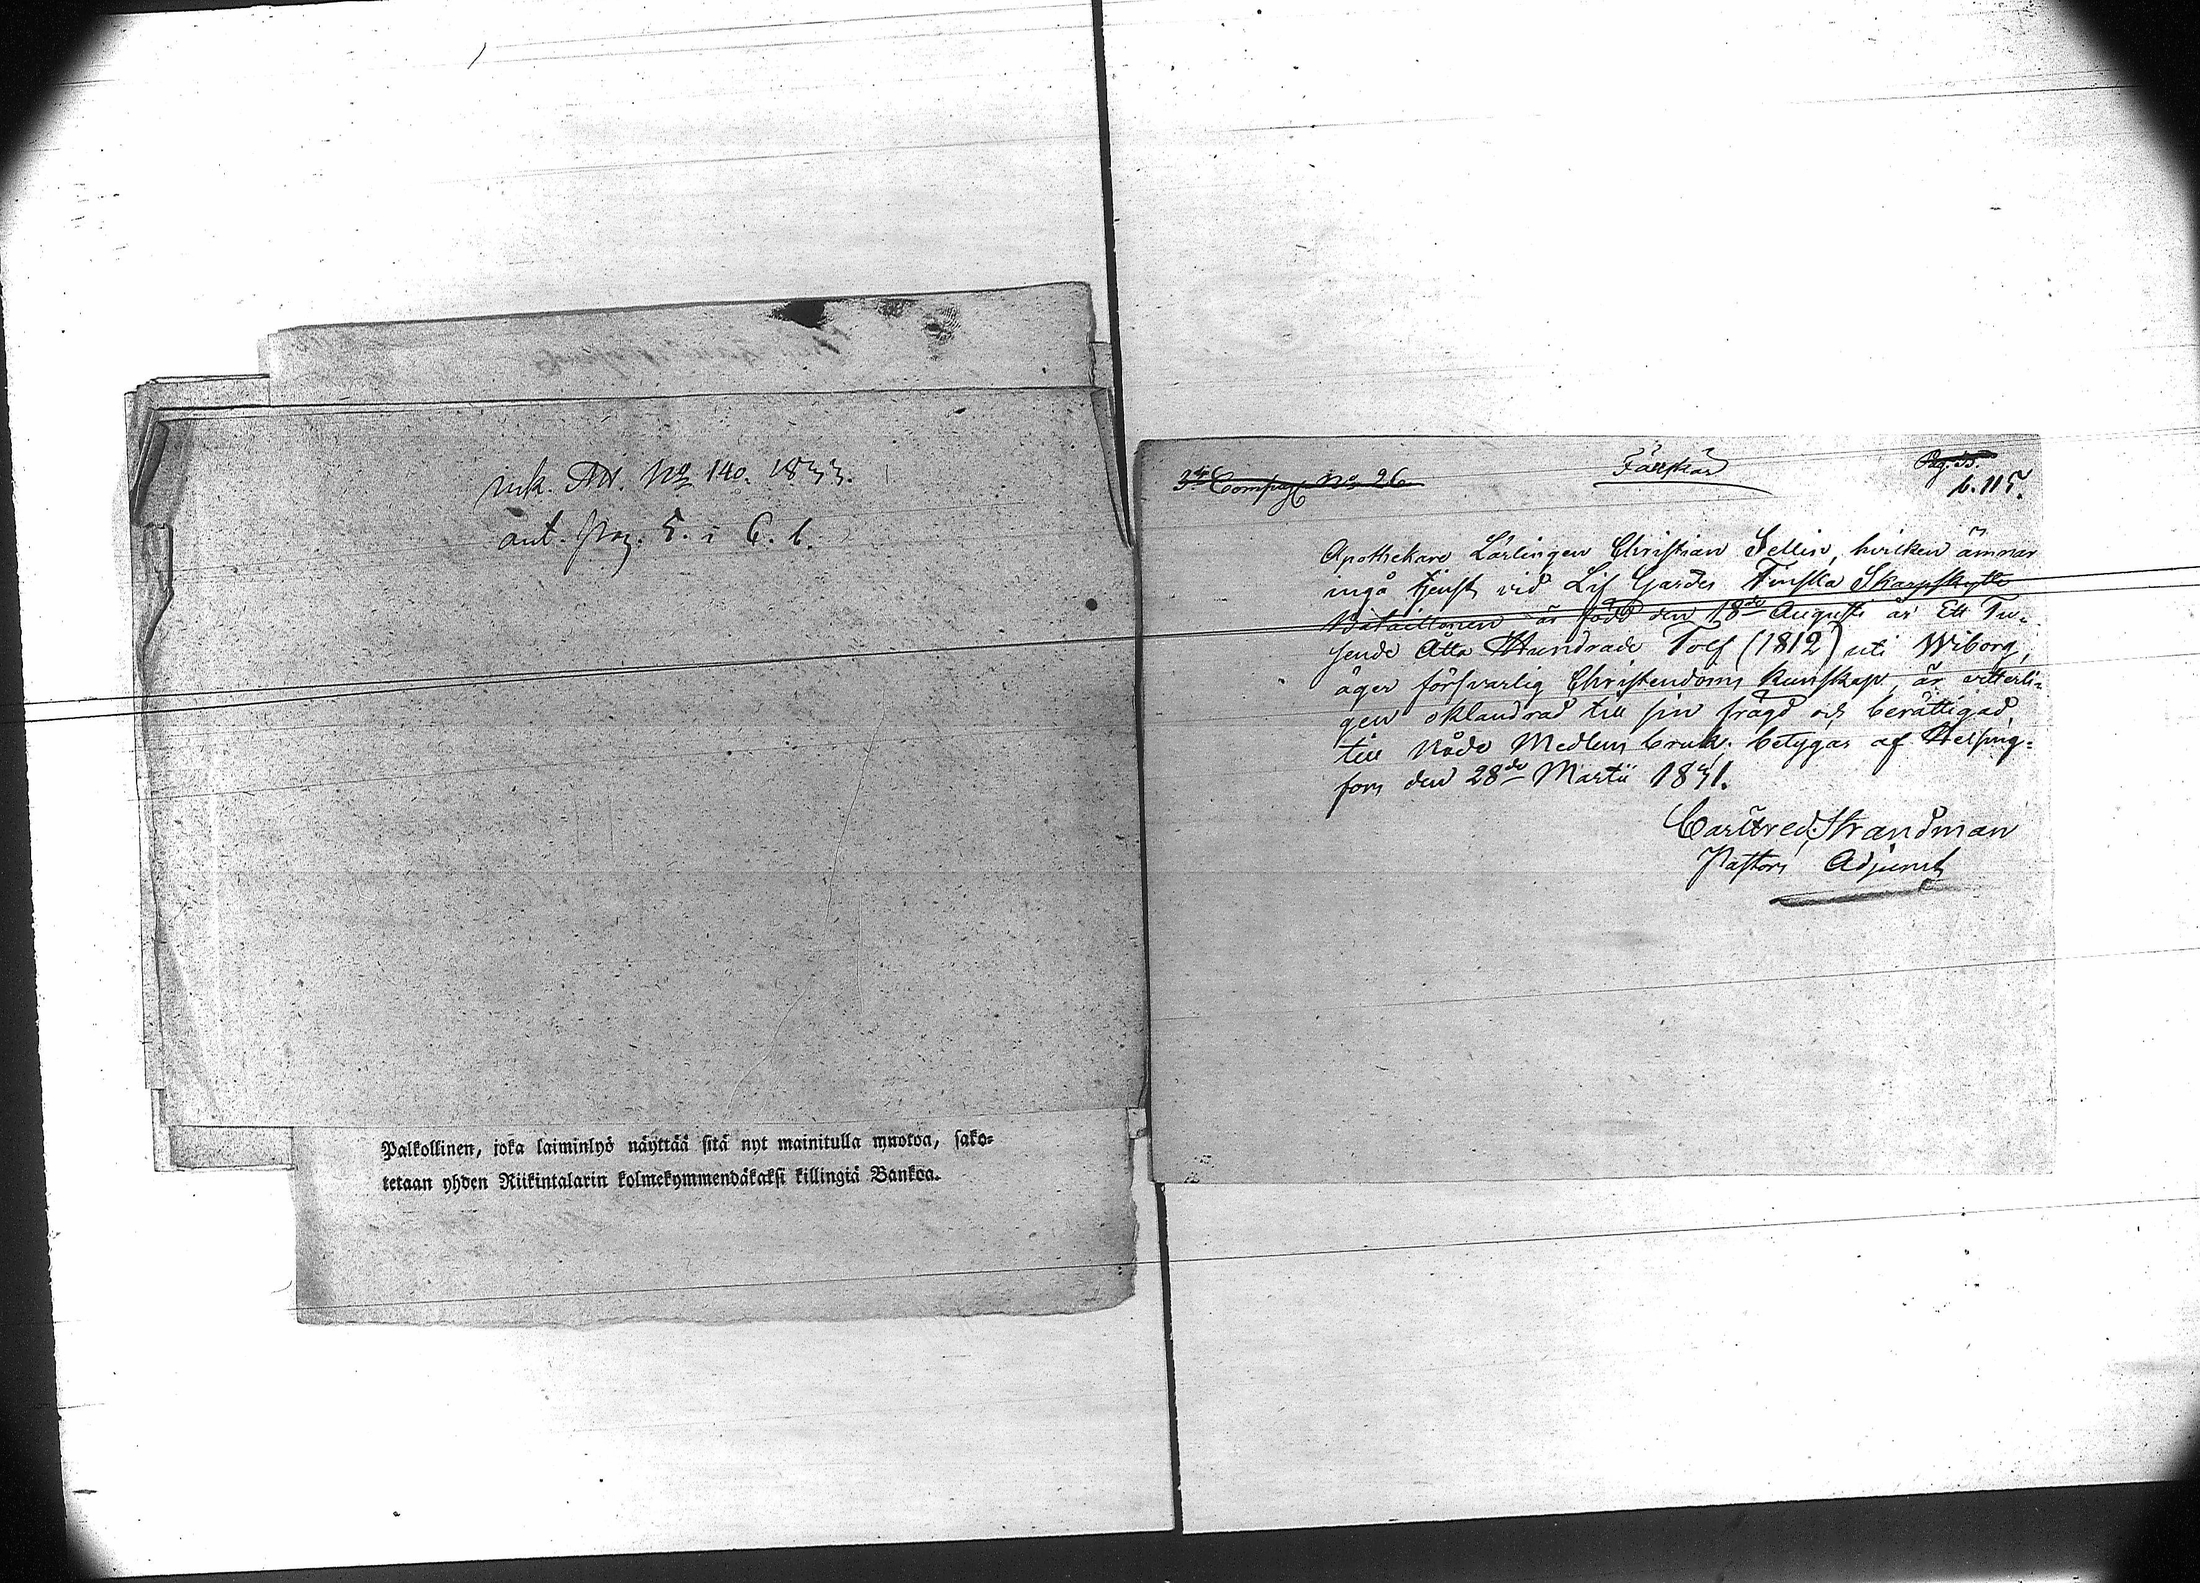 ink. Att. No 140. 1833.
ant. pag. 5. i C. b.
Palkollinen, joka laiminlyö näyttää sitä nyt mainitulla muotoa, sako-
tetaan yhden Riikintalarin kolmekymmendäkaksi killingiä Bankoa.
3dje Compagt No 26
Fältskär
Pag. 55.
b. 115.
Apothekare Lärlingen Christian Sellin, hvilken ämnar
ingå tjenst vid Lif Gardes Finska Skarpskytte
Bataillonen är född den 18de Augusti år Ett Tu-
sende Åtta Hundrade Tolf (1812) uti Wiborg,
äger försvarlig Christendoms kunskap, är vitterli-
gen oklandrad till sin frägd och berättigad
till Nåde Medlens bruk; betygas af Helsing-
fors den 28de Martii 1831.
Carl Fred. Strandman
Pastors Adjunct